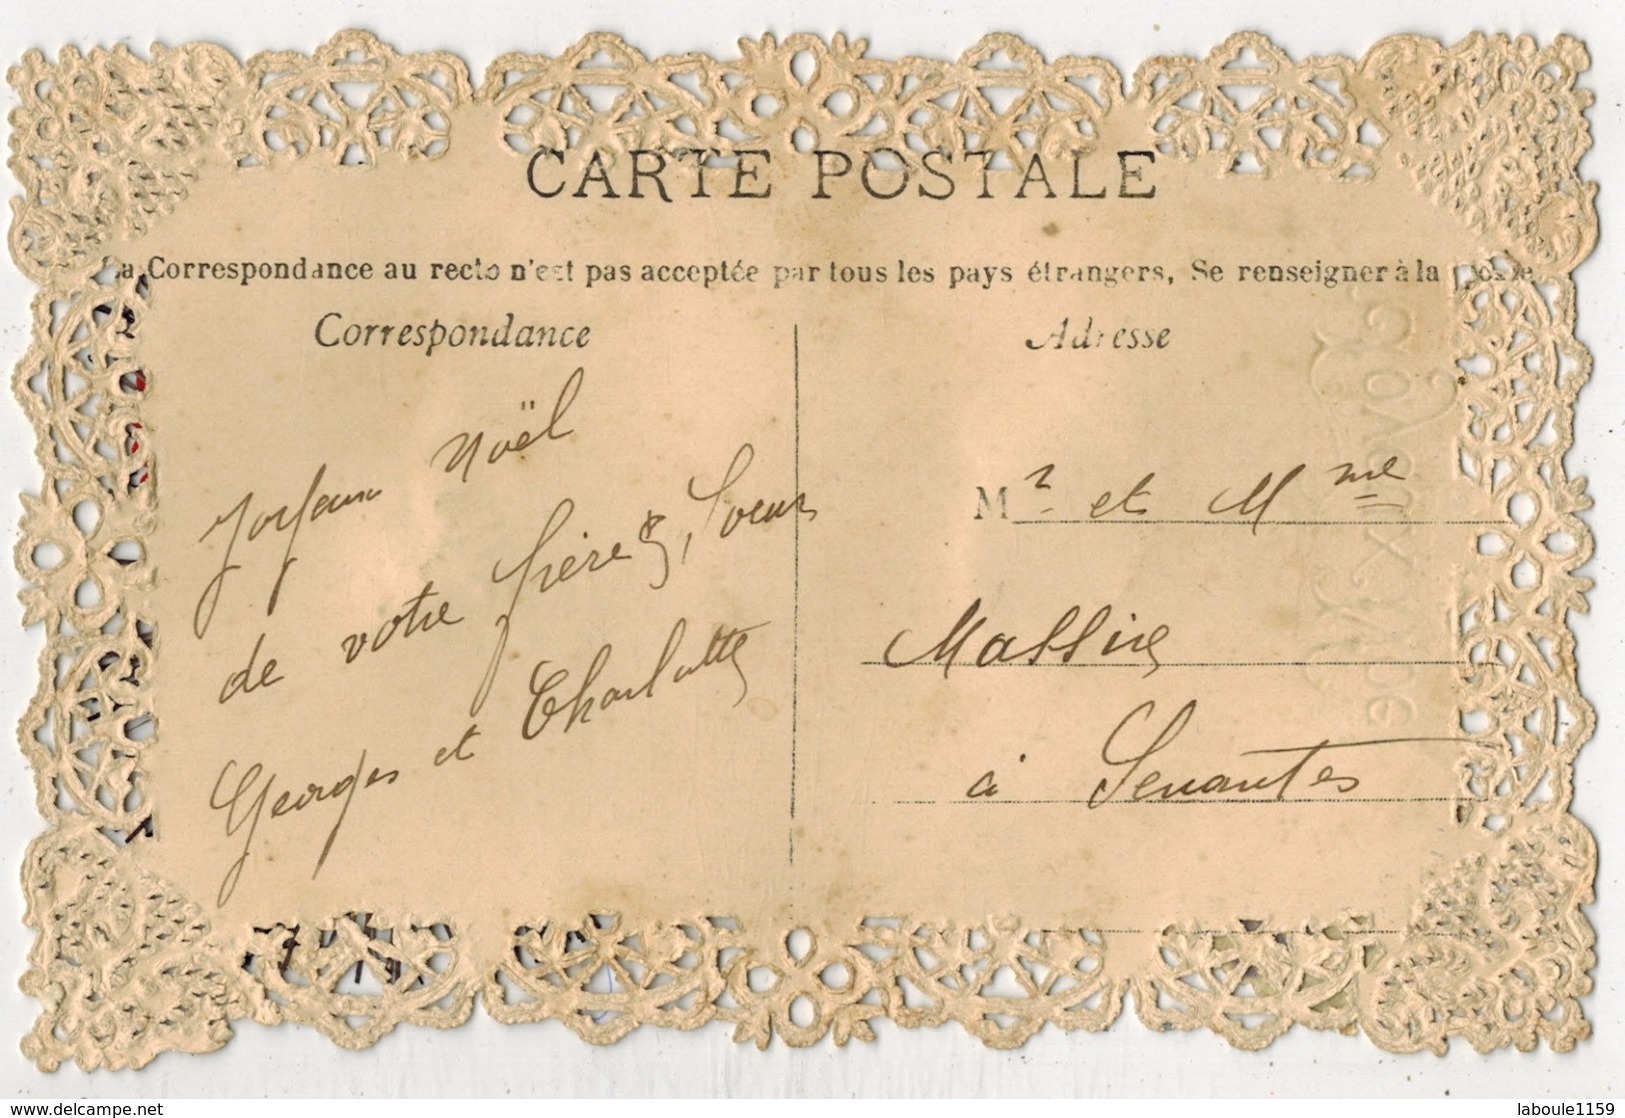 CARTE POSTALE
La Correspondance au recto n'est pas acceptée par tous les pays étrangers, Se renseigner à la poste
Correspondance
Joyeux Noël
de votre frère &, Soeur
Georges et Charlotte
Adresse
Mr et Mme
à Senantes
www.delcampe.net
laboule1159